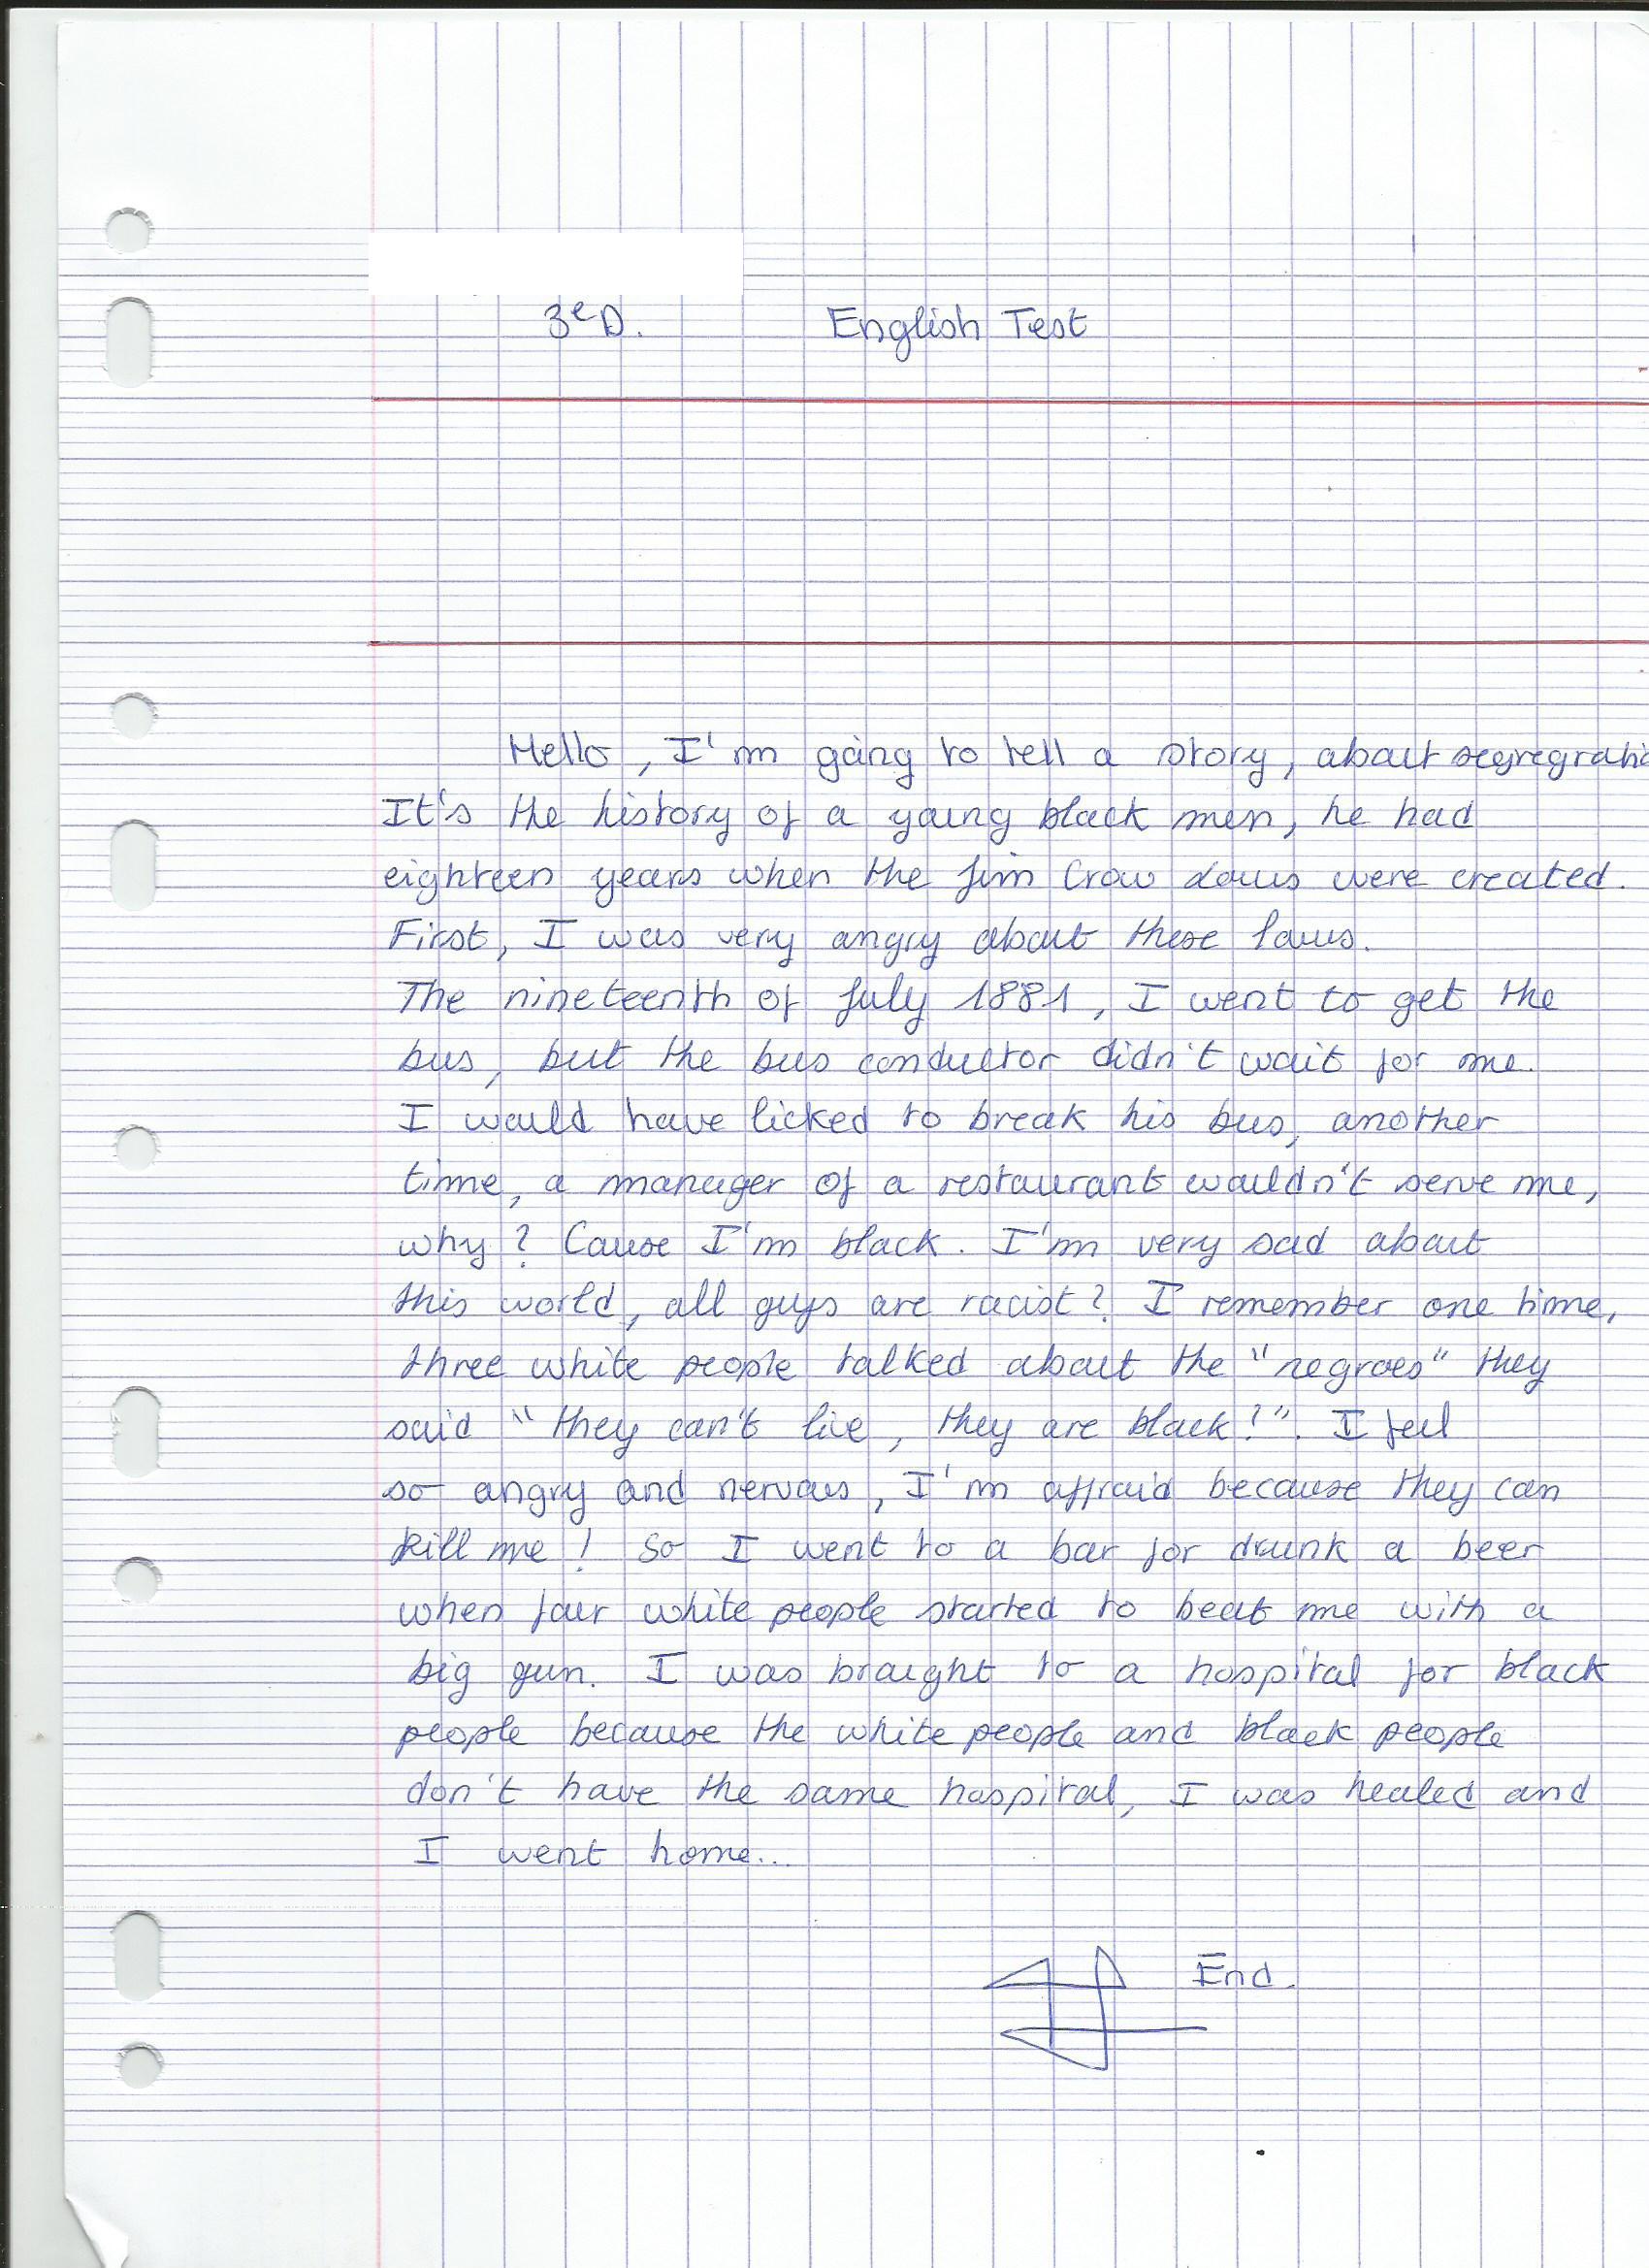 3eD. English Test
Hello, I'm going to tell a story, about segregratio
It's the history of a young black men, he had
eighteen years when the Jim Crow Laws were created.
First, I was very angry about these laws.
The nineteenth of July 1881, I went to get the
bus, but the bus conductor didn't wait for me.
I would have licked to break his bus, another
time, a manager of a restaurant wouldn't serve me,
why? Cause I'm black. I'm very sad about
this world, all guys are racist? I remember one time,
three white people talked about the "negroes" they
said "they can't live, they are black!". I feel
so angry and nervous, I'm affraid because they can
kill me! So I went to a bar for drunk a beer
when four white people started to beat me with a
big gun. I was braught to a hospital for black
people because the white people and black people
don't have the same hospital, I was healed and
I went home...
End.